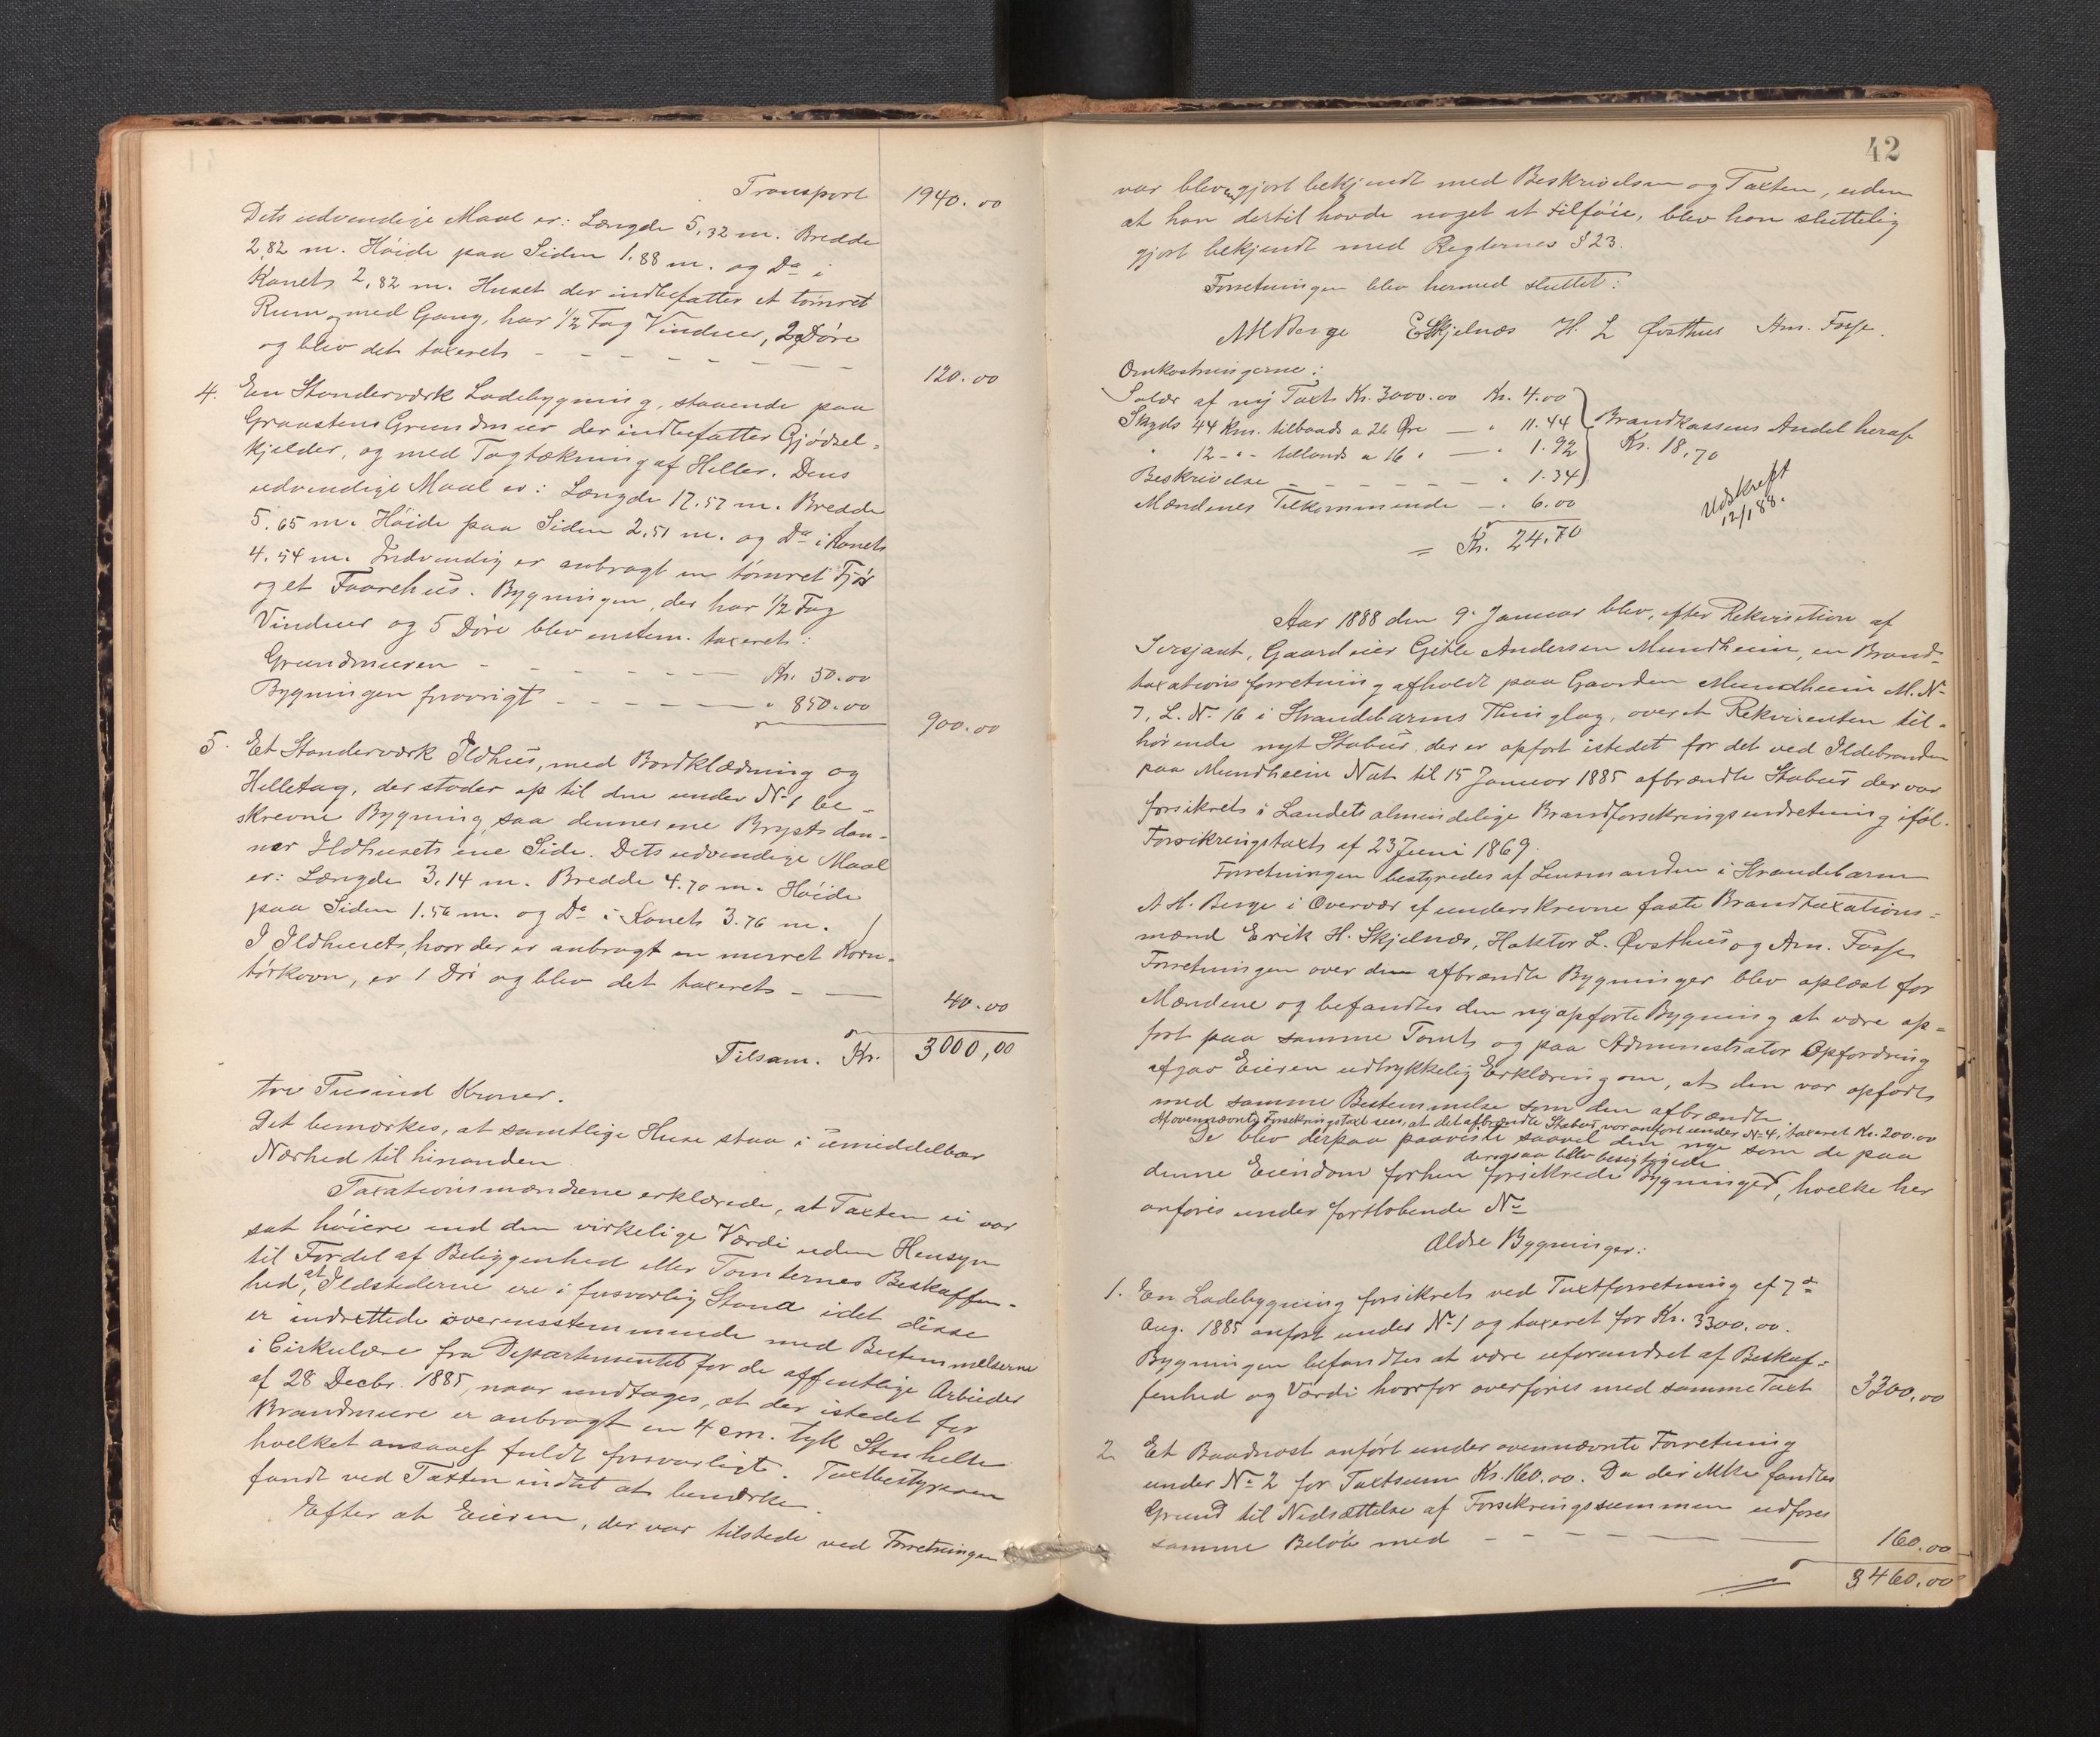 Transport 1940.00
Dets udvendige Maal er: Længde 5,32 m. Bredde
2,82 m. Höide paa Siden 1.88 m. og Do i
Rönets 2,82 m. Huset der indbefatter et tömret
Rum og med Gang, har 1/2 Fag Vinduer, 2 Döre
og blev det taxerets - - - - - - - 120.00
4. En Stenderværk Ladebygning, staaende paa
Graastens Grundmuur der indbefatter Gjödsel-
kjelder, og med Tagtækning af Heller. Dens
udvendige Maal er: Længde 17.57 m. Bredde
5.65 m. Höide paa Siden 2.51 m. og Do i Rönets
4.54 m. Indvendig er anbragt en tömret Fjös
og et Faarehus. Bygningen, der har 1/2 Fag
Vinduer og 5 Döre blev enstem. taxerets:
Grundmuren - - - - - Kr. 50.00
Bygningen forövrigt - - - - - " 850.00
900.00
5. Et Stenderværk Ildhus, med Bordklædning og
Helletag, der stöder op til den under No 1 be-
skrevne Bygning, saa dennes ene Bryst dan-
ner Ildhusets ene Side. Dets udvendige Maal
er: Længde 3.14 m. Bredde 4.70 m. Höide
paa Siden 1.56 m. og Do i Rönets 3.76 m.
I Ildhusets, hvor der er anbragt en murret Korn-
törkovn, er 1 Dör og blev det taxerets - — 40.00
Tilsam. Kr. 3000,00
tre Tusind Kroner.
Det bemærkes, at samtlige Huse staa i umiddelbar
Nærhed til hinanden.
Taxationsmændene erklærede, at Taxten ei var
sat höiere end den virkelige Værdi uden Hensyn
til Fordel af Beliggenhed eller Tomternes Beskaffen-
hed, at Ildstederne ere i forsvarlig Stand idet disse
er indrettede overensstemmende med Bestemmelserne
i Cirkulære fra Departementet for de offentlige Arbeider
af 28 Decbr. 1885, naar undtages, at der istedet for
Brandmure er anbragt en 4 cm. tyk Stenhelle
hvilket ansaaes fuldt forsvarligt. Taxtbestyreren
fandt ved Taxten intet at bemærke.
Efter at Eieren, der var tilstede ved Forretningen
42
var bleven gjort bekjendt med Beskrivelsen og Taxten, uden
at han dertil havde noget at tilföie, blev han sluttelig
gjort bekjendt med Reglernes § 23.
Forretningen blev hermed sluttet:
AH Berge EHSkjelnæs H. L Østhus Am. Fosse.
Omkostningerne:
Salær af ny Taxt Kr. 3000.00 Kr. 4.00
Skyds 44 Km. tilbaads a 26 Øre — " 11.44
" 12 - " - tillands a 16 " — " 1.92
Beskrivelse - - - - - " 1.34
Brandkassens Andel heraf
Kr. 18,70
Mændenes Tilkommende — " 6.00
= Kr. 24.70
Udskreft
12/1 88.
Aar 1888 den 9. Januar blev, efter Rekvisition af
Sersjant, Gaardeier Gitle Andersen Mundheim, en Brand-
taxationsforretning afholdt paa Gaarden Mundheim M. No
7, L. No 16 i Strandebarms Thinglag, over et Rekvirenten til-
hörende nyt Stabur, der er opfört istedet for det ved Ildebranden
paa Mundheim Nat til 15 Januar 1885 afbrændte Stabur der var
forsikrets i Landets almindelige Brandforsikringsindretning iföl.
Forsikringstaxts af 23 Juni 1869.
Forretningen bestyredes af Lensmanden i Strandebarm
A H. Berge i Overvær af underskrevne faste Brandtaxations-
mænd Erik H. Skjelnæs, Haktor L. Østhus og Am. Fosse
Forretningen over den afbrændte Bygninger blev oplæst for
Mændene og befandtes den nyopförte Bygning at være op-
fört paa samme Tomt og paa Administrator Opfordring
afgav Eieren udtrykkelig Erklæring om, at den var opförts
med samme Bestemmelse som den afbrændte.
Af ovennævnte Forsikringstaxt sees, at det afbrændte Stabur, var anfört under No 4, taxeret Kr. 200.00
De blev derpaa paaviste saavel den nye som de paa
der ogsaa blev besigtigede
denne Eiendom forhen forsikrede Bygninger, hvilke her
anföres under fortlöbende No
Ældre Bygninger:
1. En Ladebygning forsikrets ved Taxtforretning af 7de
Aug. 1885 anfört under No 1 og taxeret for Kr. 3300.00.
Bygningen befandtes at være uforandret af Beskaf-
fenhed og Værdi hvorfor overföres med samme Taxt 3300,00
2. Et Baadnøst anfört under ovennævnte Forretning
under No 2 for Taxtsum Kr. 160.00. Da der ikke fandtes
Grund til Nedsættelse af Forsikringssummen udföres
samme Belöb med - - - - — 160.00
3460.00